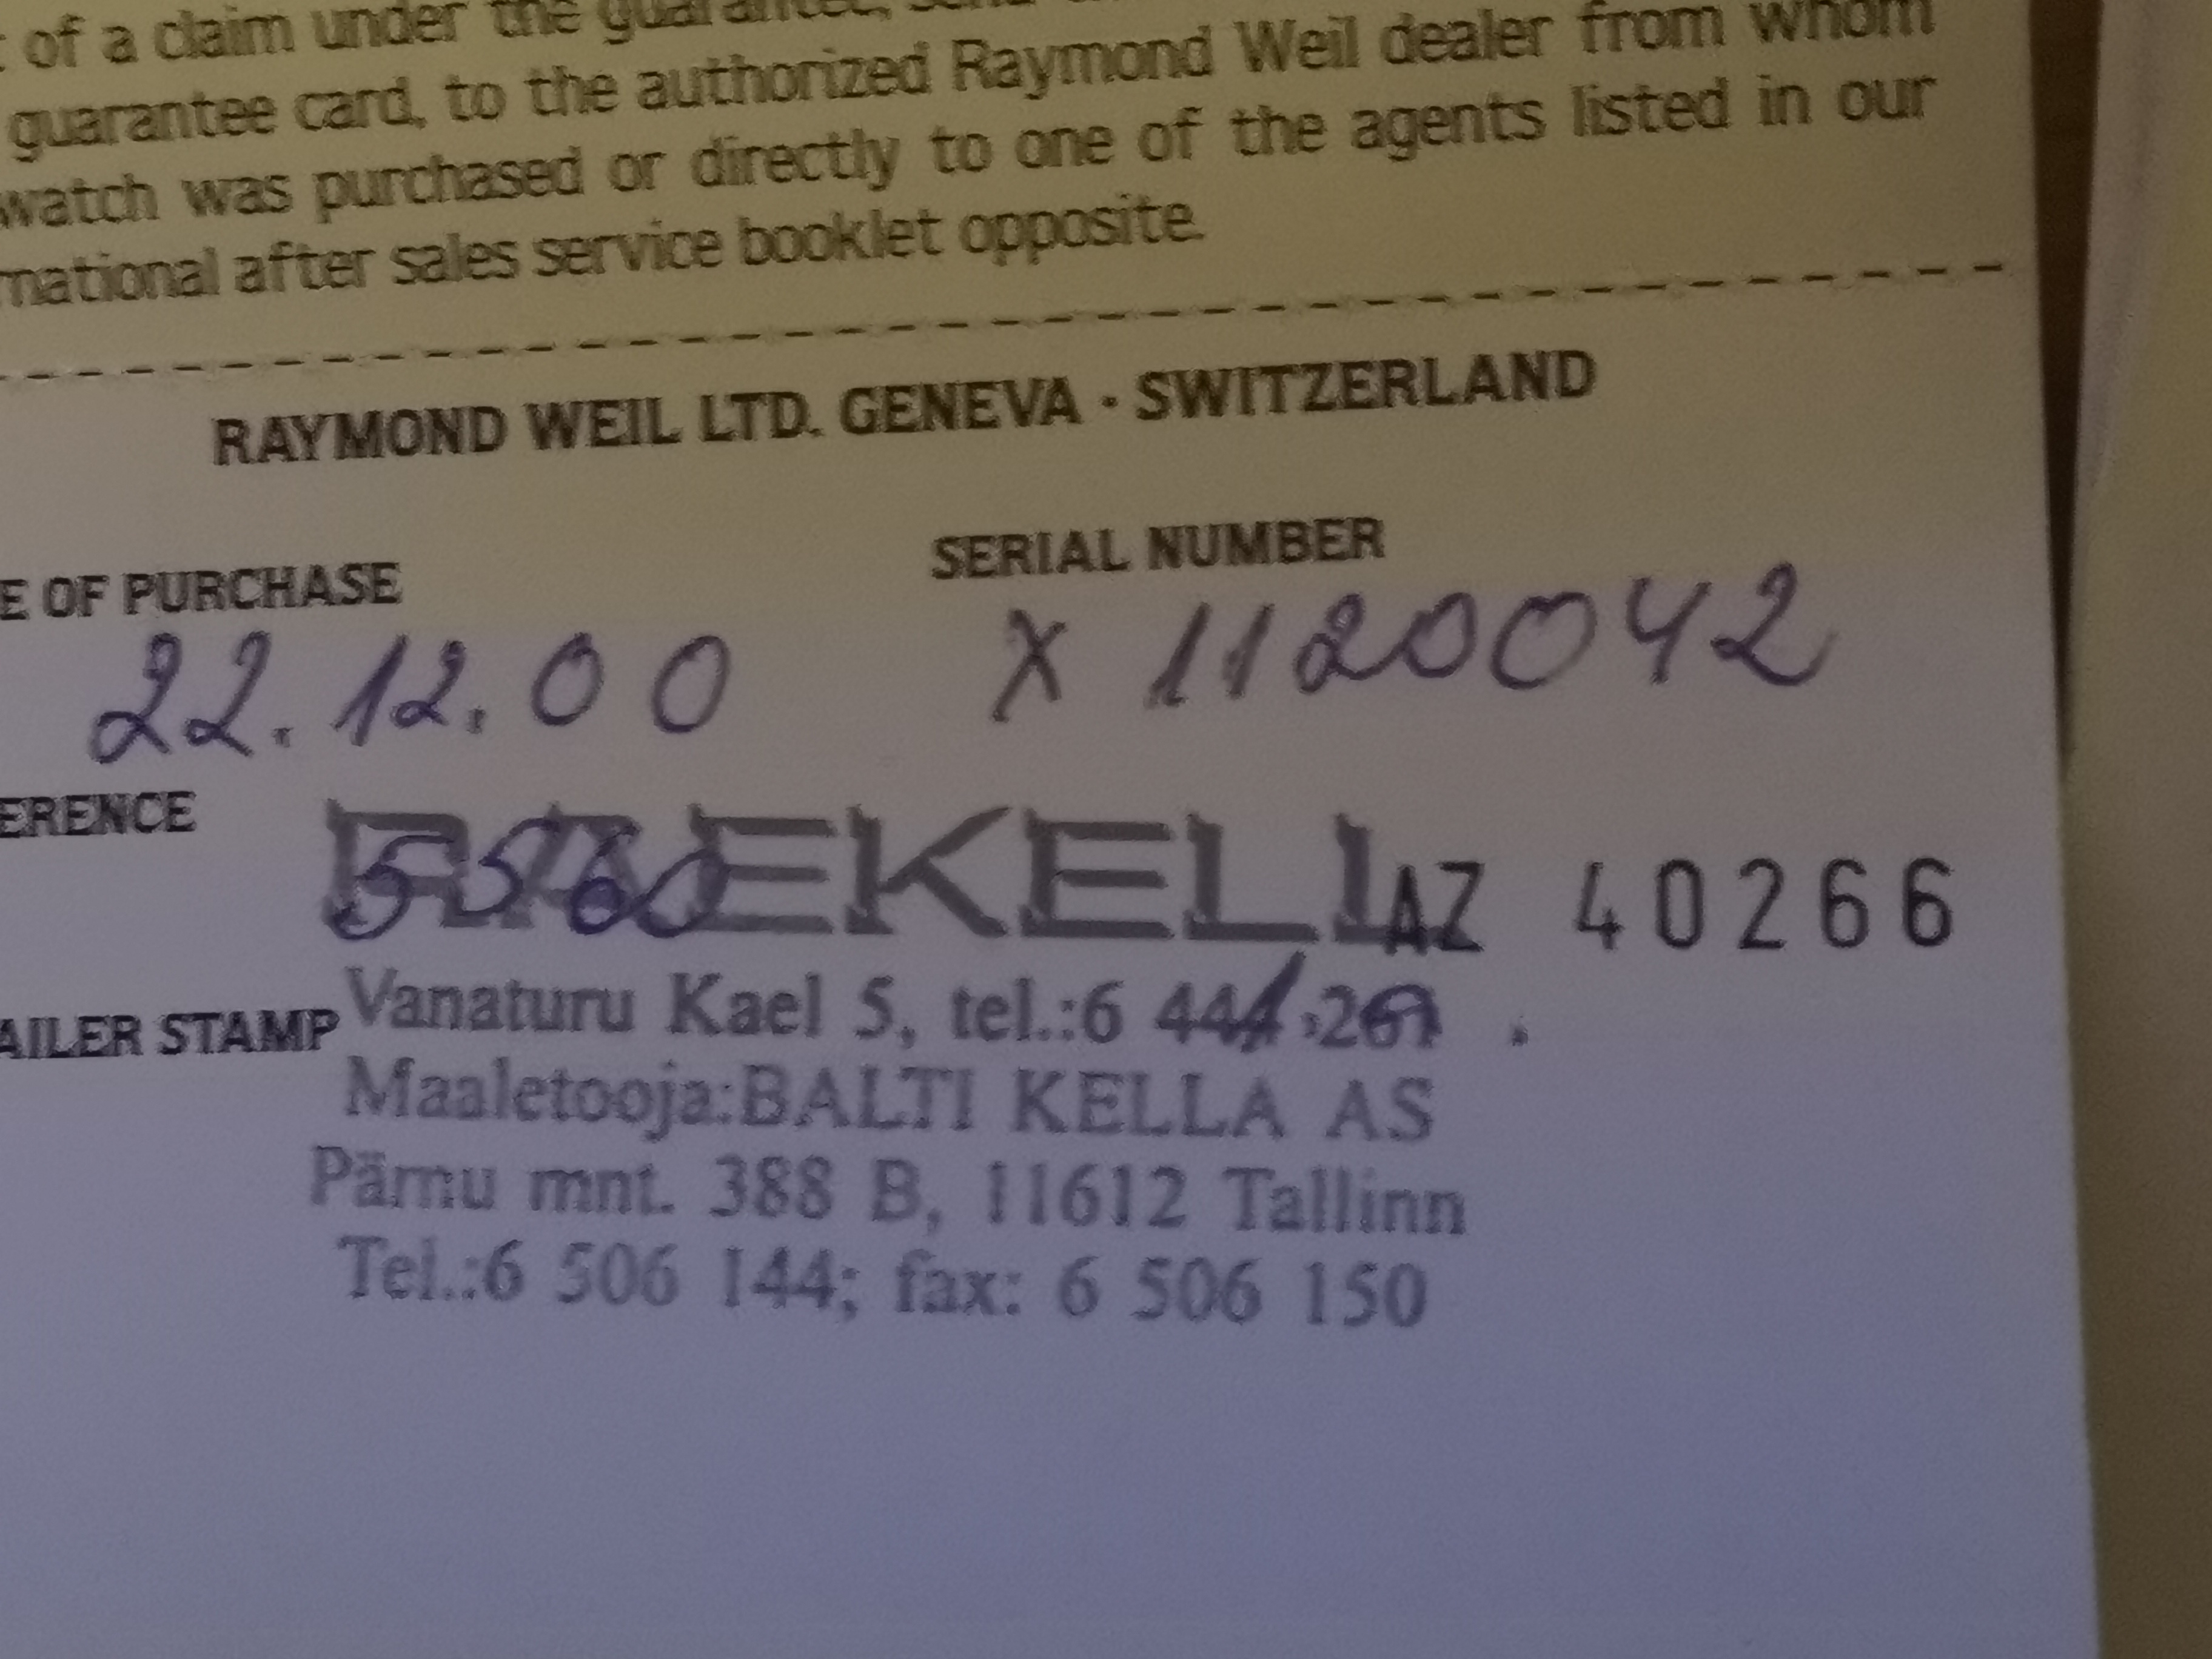 of a claim under the guarantee,
guarantee card, to the authorized Raymond Weil dealer from whom
watch was purchased or directly to one of the agents listed in our
rnational after sales service booklet opposite.
RAYMOND WEIL LTD. GENEVA · SWITZERLAND
E OF PURCHASE SERIAL NUMBER
22.12.00 X 1120042
ERENCE
5560
RAEKELL AZ 40266
AILER STAMP Vanaturu Kael 5, tel.:6
Maaletooja:BALTI KELLA AS
Pärnu mnt. 388 B, 11612 Tallinn
Tel.:6 506 144; fax: 6 506 150